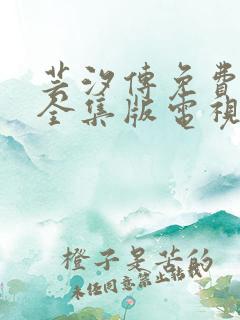 芸汐傳免費
全集版電視
橙子是苦的
未任同意禁止轉載